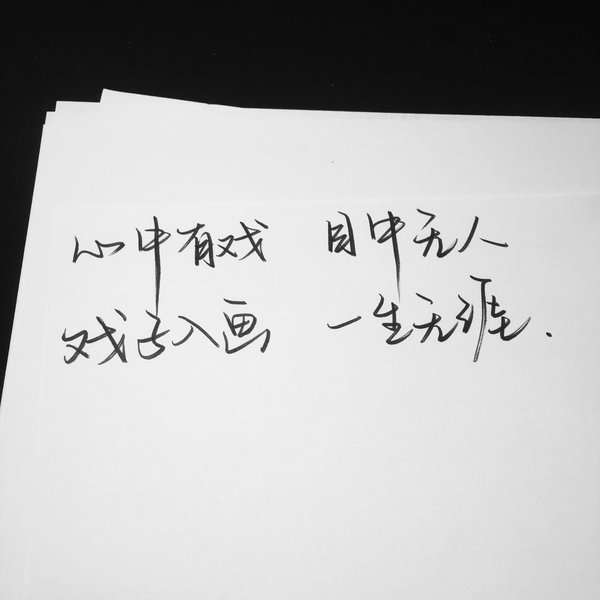 心中有戏 目中无人
戏子入画 一生无涯.